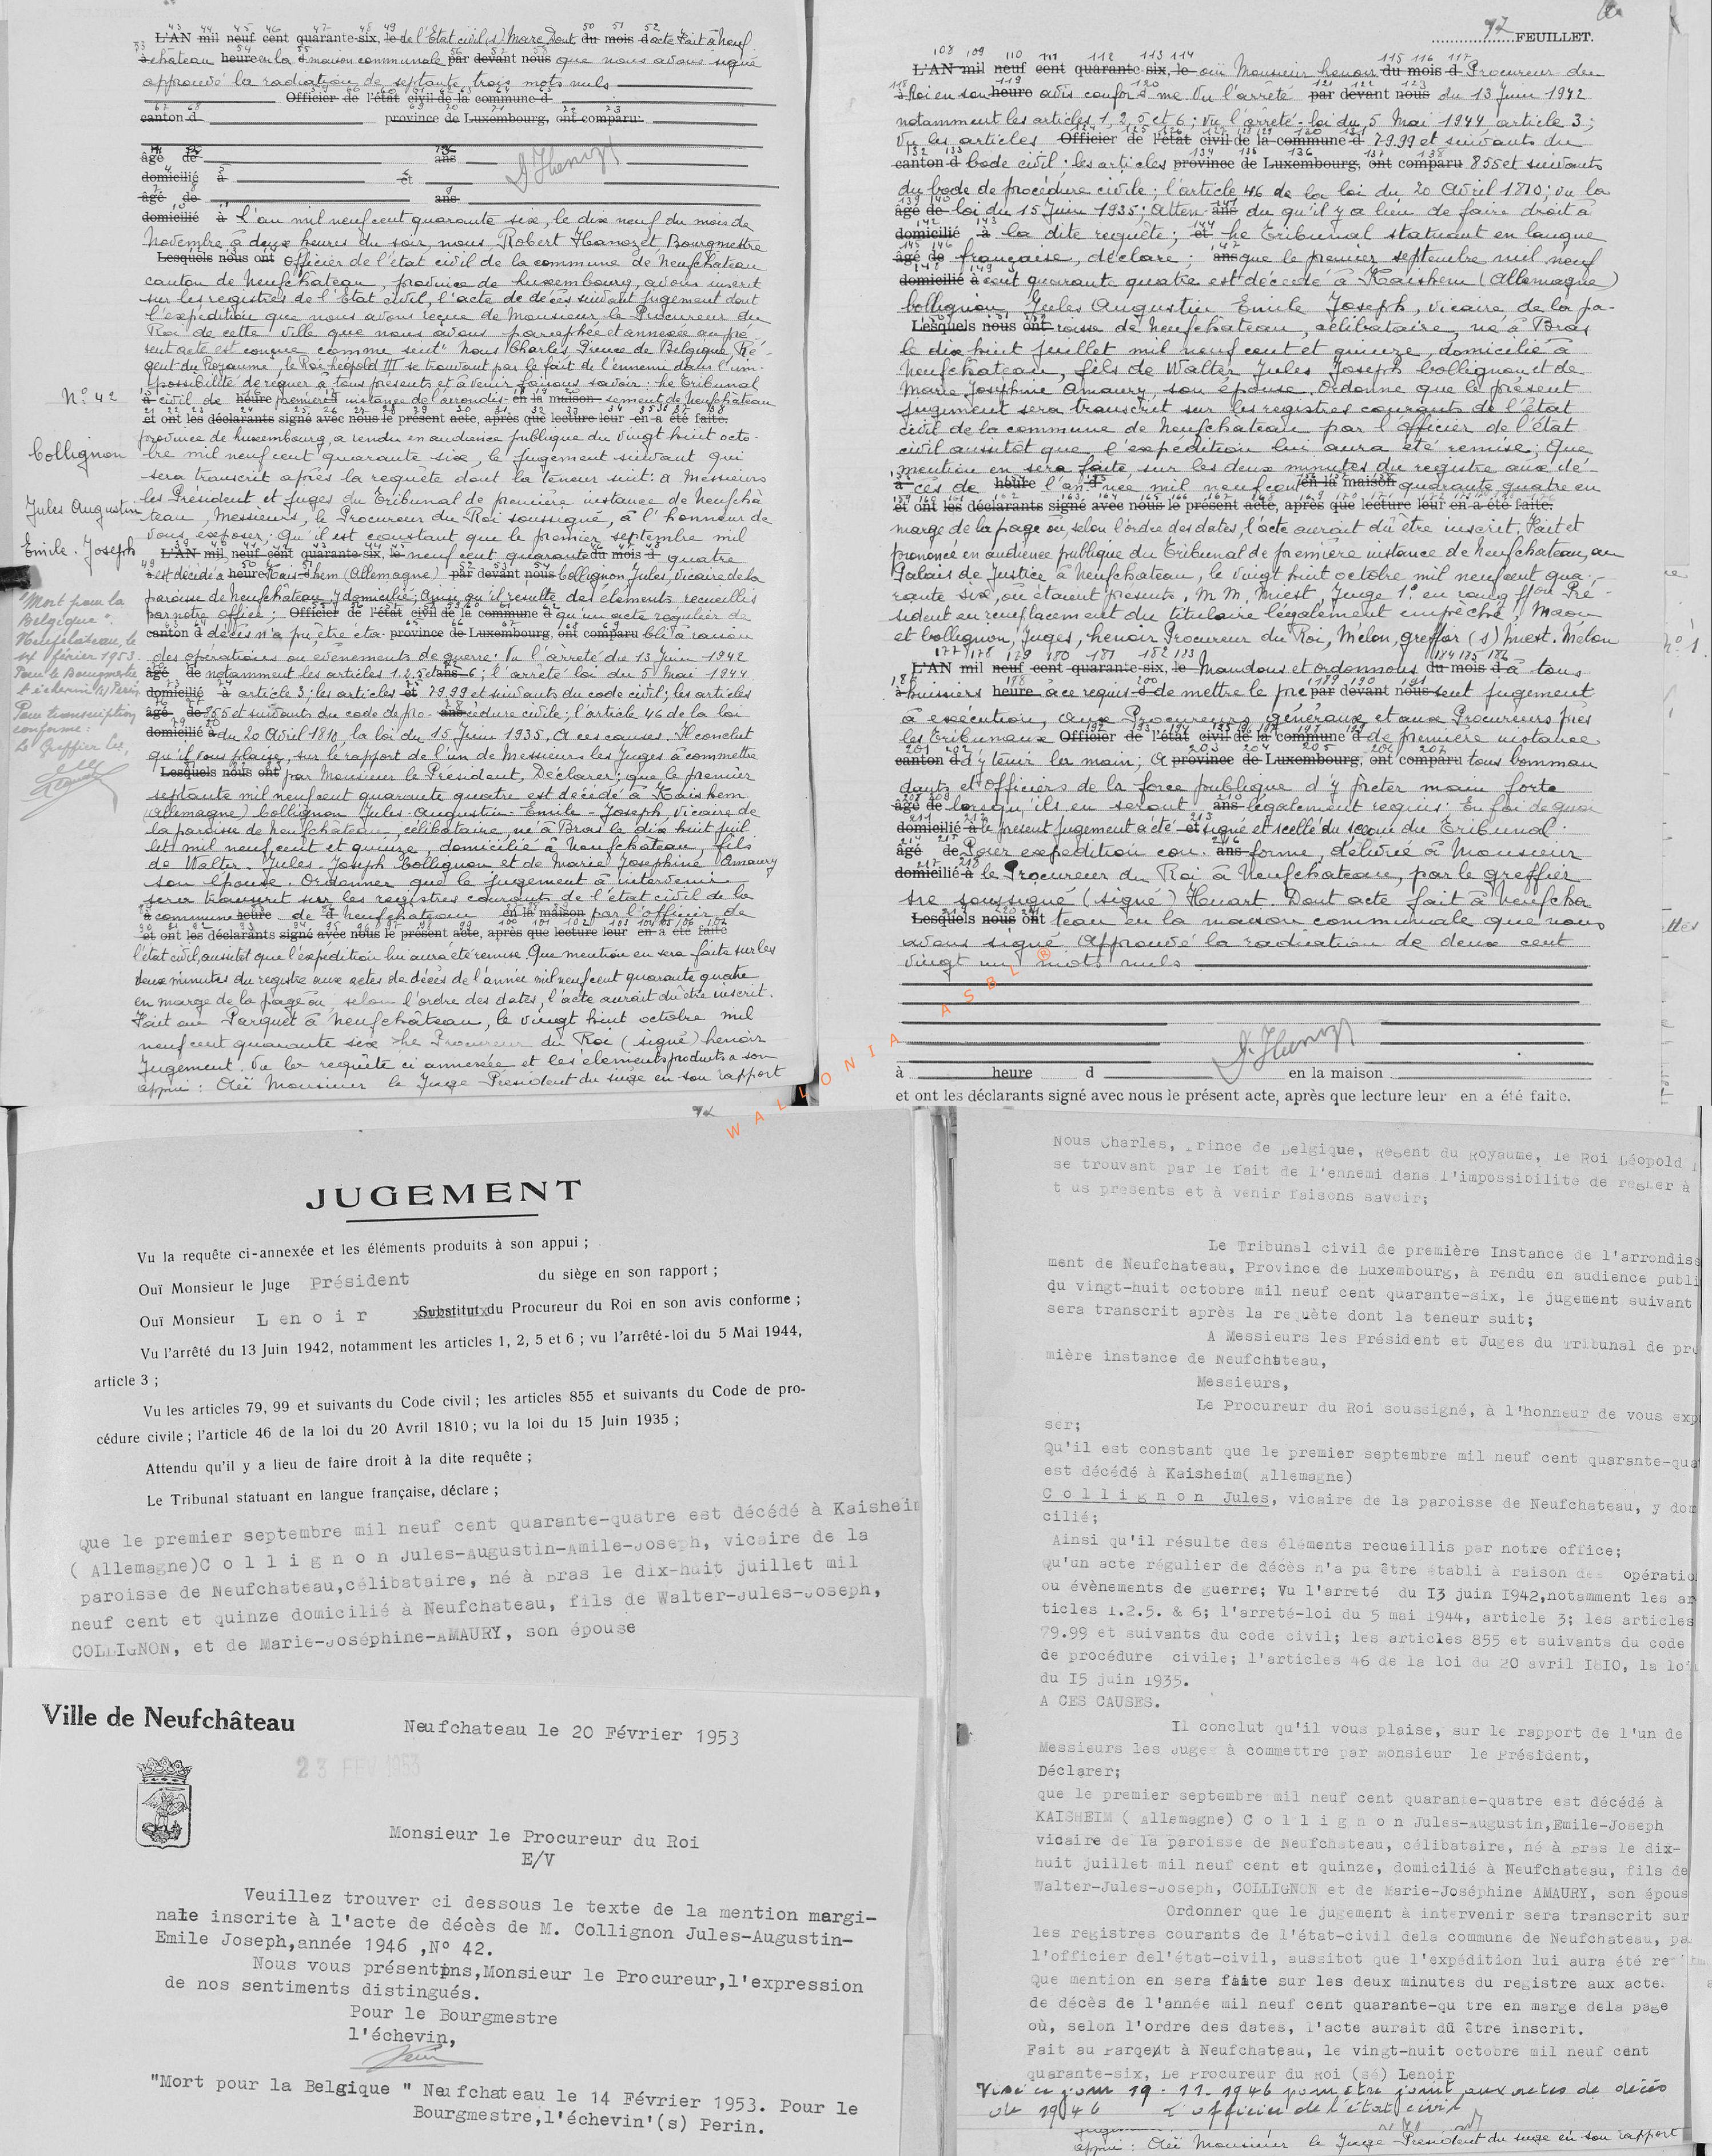 L'AN mil neuf cent quarante-six, le de l'Etat civil (s) Marc Dont du mois d acte Fait à Neuf
à château heure en la d maison communale par devant nous que nous avons signé
approuvé la radiation de septante trois mots nuls
Officier de l'état civil de la commune d
canton d province de Luxembourg, ont comparu:
âgé de ans
domicilié à et
âgé de ans
domicilié à L'an mil neuf cent quarante six, le dix neuf du mois de
Novembre à deux heures du soir, nous Robert Bourgmestre
Lesquels nous ont officier de l'état civil de la commune de Neufchâteau
canton de Neufchateau, province de Luxembourg, avons inscrit
sur les registres de l'Etat civil, l'acte de décès suivant jugement dont
l'expédition que nous avons reçue de Monsieur le Procureur du
Roi de cette ville que nous avons paraphée et annexée au pré-
sent acte est conçue comme suit "Nous Charles, Prince de Belgique, Ré-
gent du Royaume, le Roi Léopold III se trouvant par le fait de l'ennemi dans l'im-
possibilité de régner à tous présents et à venir faisons savoir: Le Tribunal
N° 42
à civil de heure première d instance de l'arrondis- en la maison sement de Neufchâteau
et ont les déclarants signé avec nous le présent acte, après que lecture leur en a été faite.
province de Luxembourg, a rendu en audience publique du vingt huit octo-
Collignon
bre mil neuf cent quarante six, le jugement suivant qui
sera transcrit après la requête dont la teneur suit: A Messieurs
les Président et Juges du Tribunal de première instance de Neufchâ-
Jules Augustin
teau, Messieurs, le Procureur du Roi soussigné, à l'honneur de
vous exposer; Qu'il est constant que le premier septembre mil
Emile. Joseph
L'AN mil neuf cent quarante-six, le neuf cent quarante du mois d quatre
à est décédé à heure Kais d hem (Allemagne) par devant nous Collignon Jules, vicaire de la
paroisse de Neufchâteau, y domicilié; Ainsi qu'il résulte des éléments recueillis
par notre office; Officier de l'état civil de la commune d qu'un acte régulier de
canton d décès n'a pu être éta- province de Luxembourg, ont comparu bli à raison
des opérations ou évènements de guerre: Vu l'arrêté du 13 Juin 1942
âgé de notamment les articles 1.2.5 et ans 6; l'arrêté loi du 5 Mai 1944
domicilié à article 3; les articles et 79.99 et suivants du code civil; les articles
âgé de 855 et suivants du code de pro- ans cédure civile; l'article 46 de la loi
domicilié à du 20 Avril 1810, la loi du 15 Juin 1935. A ces causes. Il conclut
qu'il vous plaise, sur le rapport de l'un de Messieurs les Juges à commettre
Lesquels nous ont par Monsieur le Président, Déclarer; que le premier
"Mort pour la
Belgique".
Neufchâteau, le
14 février 1953.
Pour le Bourgmestre
l'échevin (s) Perin
Pour transcription
conforme:
Le Greffier
septembre mil neuf cent quarante quatre est décédé à Kaisheim
(Allemagne) Collignon Jules-Augustin-Emile-Joseph, vicaire de
la paroisse de Neufchâteau, célibataire, né à Bras le dix huit juil-
let mil neuf cent et quinze, domicilié à Neufchâteau, fils
de Walter-Jules-Joseph Collignon et de Marie Joséphine Amaury
son épouse. Ordonner que le jugement à intervenir
sera transcrit sur les registres courants de l'état civil de la
à commune heure de d Neufchateau en la maison par l'officier de
et ont les déclarants signé avec nous le présent acte, après que lecture leur en a été faite
l'état civil, aussitôt que l'expédition lui aura été remise. Que mention en sera faite sur les
deux minutes du registre aux actes de décès de l'année mil neuf cent quarante quatre
en marge de la page où, selon l'ordre des dates, l'acte aurait dû être inscrit.
Fait au Parquet à Neufchâteau, le vingt huit octobre mil
neuf cent quarante six Le Procureur du Roi (signé) Lenoir
Jugement. Vu la requête ci annexée et les éléments produits à son
appui: Ouï Monsieur le Juge Président du siège en son rapport
72 FEUILLET.
L'AN mil neuf cent quarante-six, le ouï Monsieur Lenoir du mois d Procureur du
à Roi en son heure avis confor d me Vu l'arrêté par devant nous du 13 Juin 1942
notamment les articles 1, 2, 5 et 6; vu l'arrêté-loi du 5 Mai 1944 article 3;
Vu les articles Officier de l'état civil de la commune d 79.99 et suivants du
canton d Code civil; les articles province de Luxembourg, ont comparu 855 et suivants
du Code de Procédure civile; l'article 46 de la loi du 20 Avril 1810; vu la
âgé de loi du 15 Juin 1935; Atten- ans du qu'il y a lieu de faire droit à
domicilié à la dite requête; et Le Tribunal statuant en langue
âgé de française, déclare; ans que le premier septembre mil neuf
domicilié à cent quarante quatre est décédé à Kaishem (Allemagne)
Collignon, Jules Augustin Emile Joseph, vicaire de la pa-
Lesquels nous ont roisse de Neufchâteau, célibataire, né à Bras
le dix huit juillet mil neuf cent et quinze, domicilié à
Neufchâteau, fils de Walter Jules Joseph Collignon et de
Marie Joséphine Amaury, son épouse. Ordonne que le présent
jugement sera transcrit sur les registres courants de l'état
civil de la commune de Neufchâteau par l'Officier de l'état
civil aussitôt que l'expédition lui aura été remise; Que
mention en sera faite sur les deux minutes du registre aux dé-
à cès de heure l'an d née mil neuf cent en la maison quarante quatre en
et ont les déclarants signé avec nous le présent acte, après que lecture leur en a été faite.
marge de la page où, selon l'ordre des dates, l'acte aurait dû être inscrit. Fait et
prononcé en audience publique du Tribunal de première instance de Neufchateau, au
Palais de Justice à Neufchateau, le vingt huit octobre mil neuf cent qua-
rante six, où étaient présents, M M, Miest, Juge 1° en rang ffon Pré-
sident en remplacement du titulaire légalement empêché, Maon
et Collignon, Juges, Lenoir Procureur du Roi, Mélon, greffier (s) Miest. Mélon
L'AN mil neuf cent quarante-six, le Mandons et ordonnons du mois d à tous
à huissiers heure à ce requis d de mettre le pré par devant nous sent jugement
à exécution, aux Procureurs généraux et aux Procureurs près
les Tribunaux Officier de l'état civil de la commune d de première instance
canton d d'y tenir la main; A province de Luxembourg, ont comparu tous comman
dants et officiers de la force publique d'y prêter main forte
âgé de lorsqu'ils en seront ans légalement requis. En foi de quoi
domicilié à le présent jugement a été et signé et scellé du sceau du Tribunal.
âgé de Pour expédition con- ans forme, délivrée à Monsieur
domicilié à le Procureur du Roi à Neufchateau, par le greffier
soussigné (signé) Huart. Dont acte fait à Neufcha
Lesquels nous ont teau en la maison communale que nous
avons signé Approuvé la radiation de deux cent
vingt un mots nuls
à heure d en la maison
et ont les déclarants signé avec nous le présent acte, après que lecture leur en a été faite.
WALLONIA ASBL ®
JUGEMENT
Vu la requête ci-annexée et les éléments produits à son appui ;
Ouï Monsieur le Juge Président du siège en son rapport ;
Ouï Monsieur Lenoir Substitut du Procureur du Roi en son avis conforme ;
Vu l'arrêté du 13 Juin 1942, notamment les articles 1, 2, 5 et 6 ; vu l'arrêté-loi du 5 Mai 1944,
article 3 ;
Vu les articles 79, 99 et suivants du Code civil ; les articles 855 et suivants du Code de pro-
cédure civile ; l'article 46 de la loi du 20 Avril 1810 ; vu la loi du 15 Juin 1935 ;
Attendu qu'il y a lieu de faire droit à la dite requête ;
Le Tribunal statuant en langue française, déclare ;
Que le premier septembre mil neuf cent quarante-quatre est décédé à Kaisheim
( Allemagne)C o l l i g n o n Jules-Augustin-Amile-Joseph, vicaire de la
paroisse de Neufchateau,célibataire, né à Bras le dix-huit juillet mil
neuf cent et quinze domicilié à Neufchateau, fils de Walter-Jules-Joseph,
COLLIGNON, et de Marie-Joséphine-AMAURY, son épouse
Ville de Neufchâteau
Neufchateau le 20 Février 1953
23 FEV 1953
Monsieur le Procureur du Roi
E/V
Veuillez trouver ci dessous le texte de la mention margi-
nale inscrite à l'acte de décès de M. Collignon Jules-Augustin-
Emile Joseph,année 1946 ,N° 42.
Nous vous présentons,Monsieur le Procureur,l'expression
de nos sentiments distingués.
Pour le Bourgmestre
l'échevin,
"Mort pour la Belgique " Neufchateau le 14 Février 1953. Pour le
Bourgmestre,l'échevin'(s) Perin.
Nous Charles, Prince de Belgique, Régent du Royaume, le Roi Léopold
se trouvant par le fait de l'ennemi dans l'impossibilite de régner à
t us presents et à venir faisons savoir;
Le Tribunal civil de première Instance de l'arrondiss
ment de Neufchateau, Province de Luxembourg, à rendu en audience publi
du vingt-huit octobre mil neuf cent quarante-six, le jugement suivant
sera transcrit après la requète dont la teneur suit;
A Messieurs les Président et Juges du Tribunal de pre
mière instance de Neufchateau,
Messieurs,
Le Procureur du Roi soussigné, à l'honneur de vous exp
ser;
Qu'il est constant que le premier septembre mil neuf cent quarante-qua
est décédé à Kaisheim( Allemagne)
C o l l i g n o n Jules, vicaire de la paroisse de Neufchateau, y dom
cilié;
Ainsi qu'il résulte des éléments recueillis par notre office;
Qu'un acte régulier de décès n'a pu être établi à raison des opératio
ou évènements de guerre; Vu l'arreté du I3 juin 1942,notamment les ar
ticles 1.2.5. & 6; l'arreté-loi du 5 mai 1944, article 3; les articles
79.99 et suivants du code civil; les articles 855 et suivants du code
de procédure civile; l'articles 46 de la loi du 20 avril I8IO, la loi
du I5 juin 1935.
A CES CAUSES.
Il conclut qu'il vous plaise, sur le rapport de l'un de
Messieurs les Juges à commettre par monsieur le Président,
Déclarer;
que le premier septembre mil neuf cent quarante-quatre est décédé à
KAISHEIM ( Allemagne) C o l l i g n o n Jules-Augustin,Emile-Joseph
vicaire de la paroisse de Neufchateau, célibataire, né à Bras le dix-
huit juillet mil neuf cent et quinze, domicilié à Neufchateau, fils de
Walter-Jules-Joseph, COLLIGNON et de Marie-Joséphine AMAURY, son épous
Ordonner que le jugement à intervenir sera transcrit sur
les registres courants de l'état-civil dela commune de Neufchateau, pa
l'officier del'état-civil, aussitot que l'expédition lui aura été re
Que mention en sera faite sur les deux minutes du registre aux actes
de décès de l'année mil neuf cent quarante-qu tre en marge dela page
où, selon l'ordre des dates, l'acte aurait dû être inscrit.
Fait au Parqent à Neufchateau, le vingt-huit octobre mil neuf cent
quarante-six, Le Procureur du Roi (sé) Lenoir
Visé ce jour 19. 11. 1946 pour être joint aux actes de décès
de 1946 L'officier de l'état civil
appui: Ouï Monsieur le Juge Président du siège en son rapport